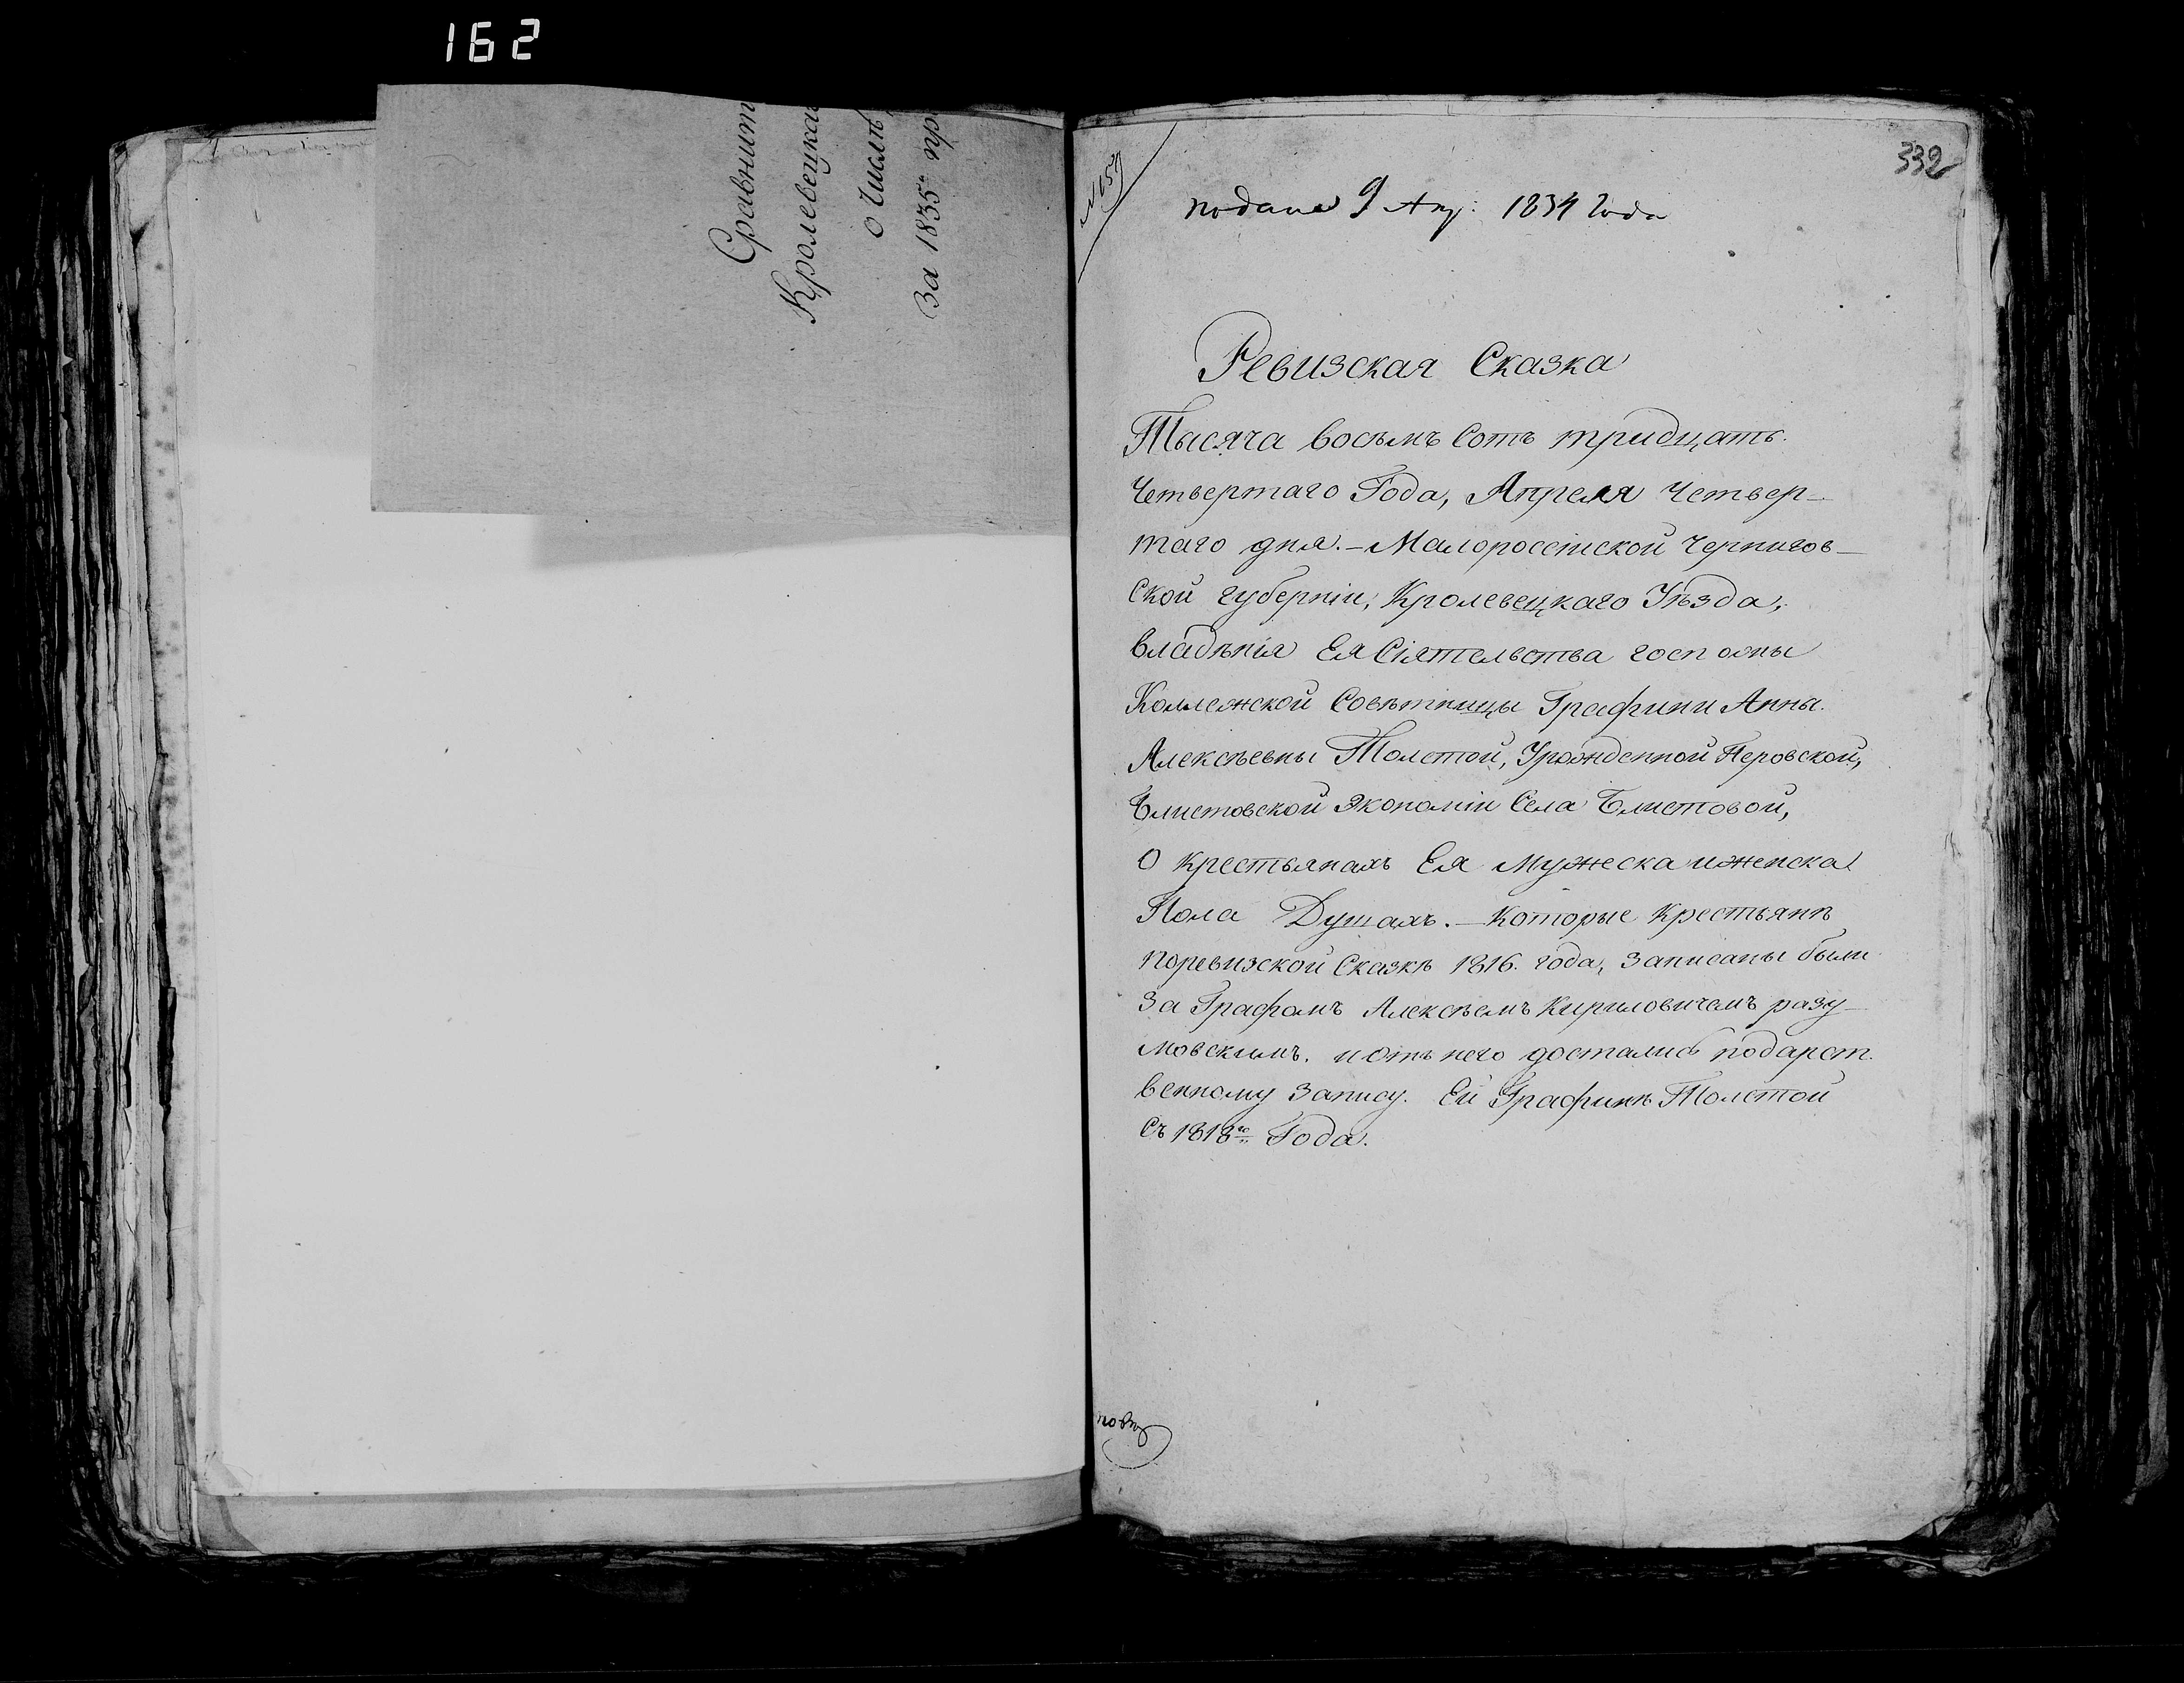 162
Сравнит
Кролевецка
о Числѣ
За 1835й пр
332
подана 9 Апр: 1834 Года
Ревизская Сказка
Тысяча восѣмъ Сотъ тридцать
Четвертаго Года, Апреля Четвер-
таго дня.- Малоросейской Чернигов-
Ской губерніи, Кролевецкаго Уѣзда,
владѣнія Ея Сіятельства госпожи
Коллежской Совѣтницы Графини Анны
Алексѣевны Толстой, Урожденной Перовской,
Блистовской Экономіи Села Блистовой,
О крестьянахъ Ея Мужеска иженска
Пола Душахъ.- Которые Крестьянѣ
поревизской Сказкѣ 1816. года, Записаны были
За Графомъ Алексѣемъ Кириловичемъ разу-
мовскимъ. и отъ него достались подарст.
венному Запису. Ей Графинѣ Толстой
Съ 1818го Года.